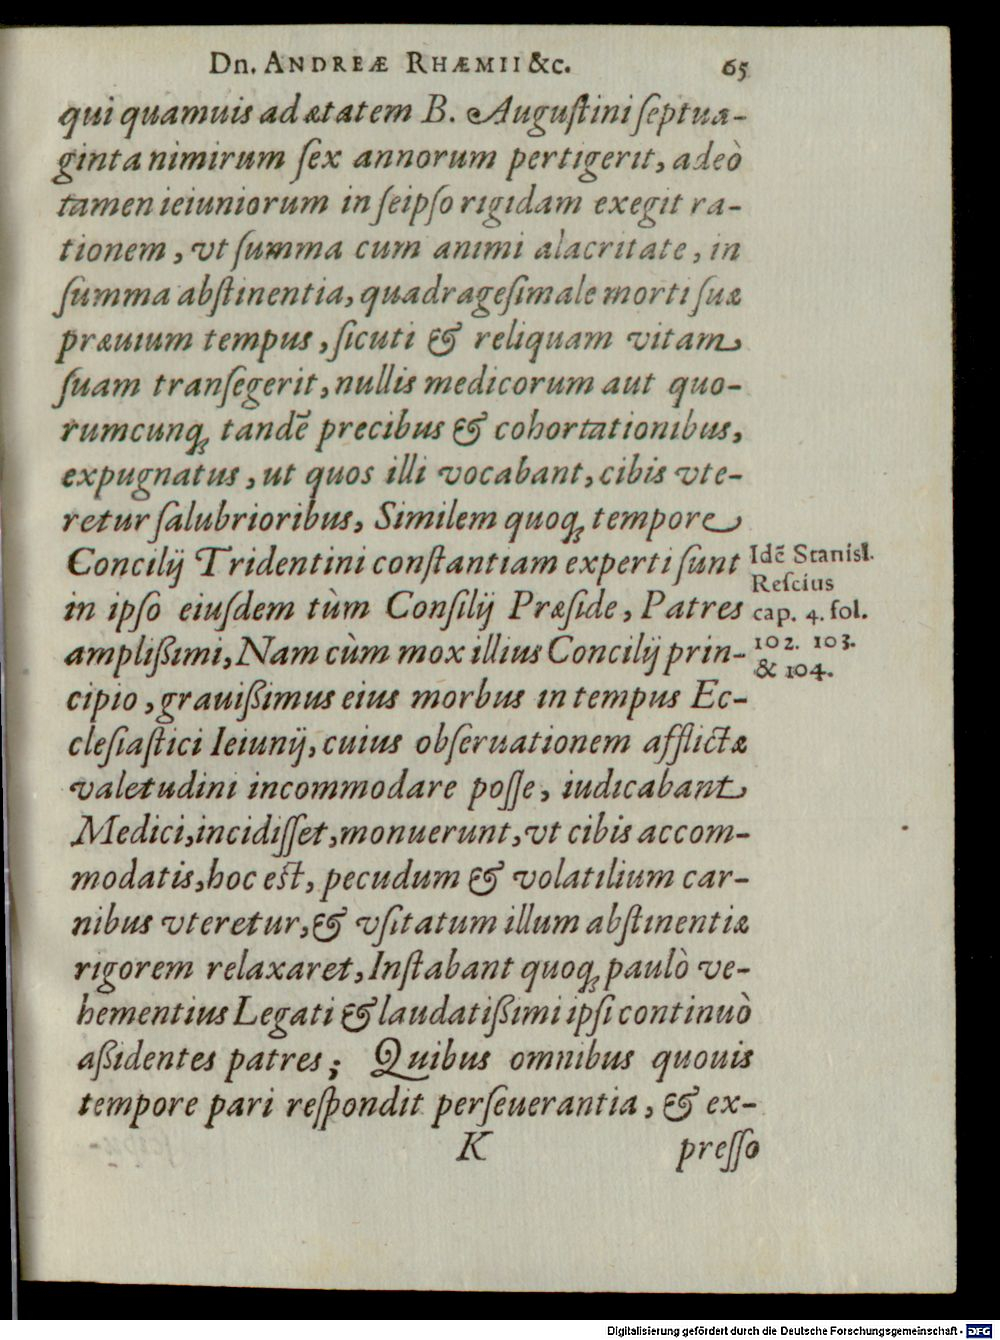 Dn. ANDREÆ RHÆMII &c. 65
qui quamuis ad ætatem B. Auguſtini ſeptua-
ginta nimirum ſex annorum pertigerit, adeò
tamen ieiuniorum in ſeipſo rigidam exegit ra-
tionem, vt ſumma cum animi alacritate, in
ſumma abſtinentia, quadrageſimale morti ſuæ
præuium tempus, ſicuti & reliquam vitam
ſuam tranſegerit, nullis medicorum aut quo-
rumcunq; tandē precibus & cohortationibus,
expugnatus, ut quos illi vocabant, cibis vte-
retur ſalubrioribus, Similem quoq; tempore
Concilij Tridentini conſtantiam experti ſunt
in ipſo eiuſdem tùm Conſilij Præſide, Patres
amplißimi, Nam cùm mox illius Concilij prin-
cipio, grauißimus eius morbus in tempus Ec-
cleſiaſtici Ieiunij, cuius obſeruationem afflictæ
valetudini incommodare poſſe, iudicabant
Medici, incidiſſet, monuerunt, vt cibis accom-
modatis, hoc eſt, pecudum & volatilium car-
nibus vteretur, & vſitatum illum abſtinentiæ
rigorem relaxaret, Inſtabant quoq; paulò ve-
hementius Legati & laudatißimi ipſi continuò
aßidentes patres; Quibus omnibus quouis
tempore pari reſpondit perſeuerantia, & ex-
K preſſo
Idē Stanisl.
Reſcius
cap. 4. fol.
102. 103.
& 104.
Digitalisierung gefördert durch die Deutsche Forschungsgemeinschaft - DFG